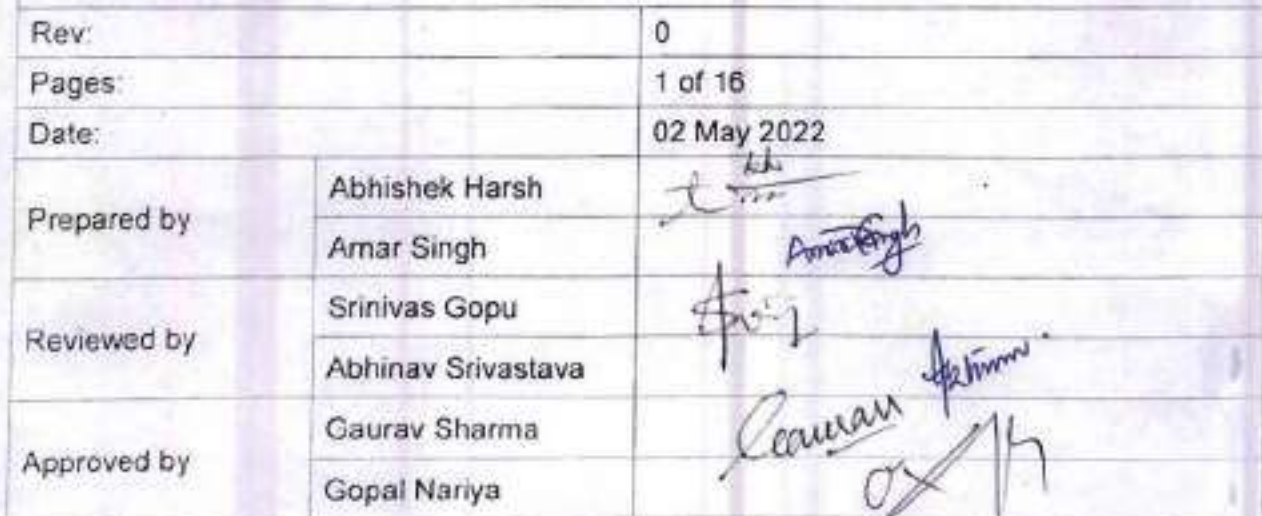 Rev: 0
Pages: 1 of 16
Date: 02 May 2022
Prepared by
Abhishek Harsh
Amar Singh Amar Singh
Reviewed by
Srinivas Gopu
Abhinav Srivastava
Approved by
Gaurav Sharma Gaurav
Gopal Nariya